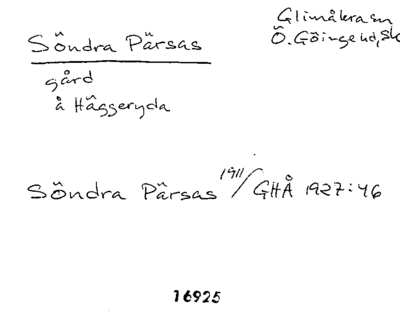 Glimåkra sn
Ö. Göinge hd, Sk
Söndra Pärsas
gård
å Häggeryda
Söndra Pärsas 1911/GHÅ 1927:46
16925